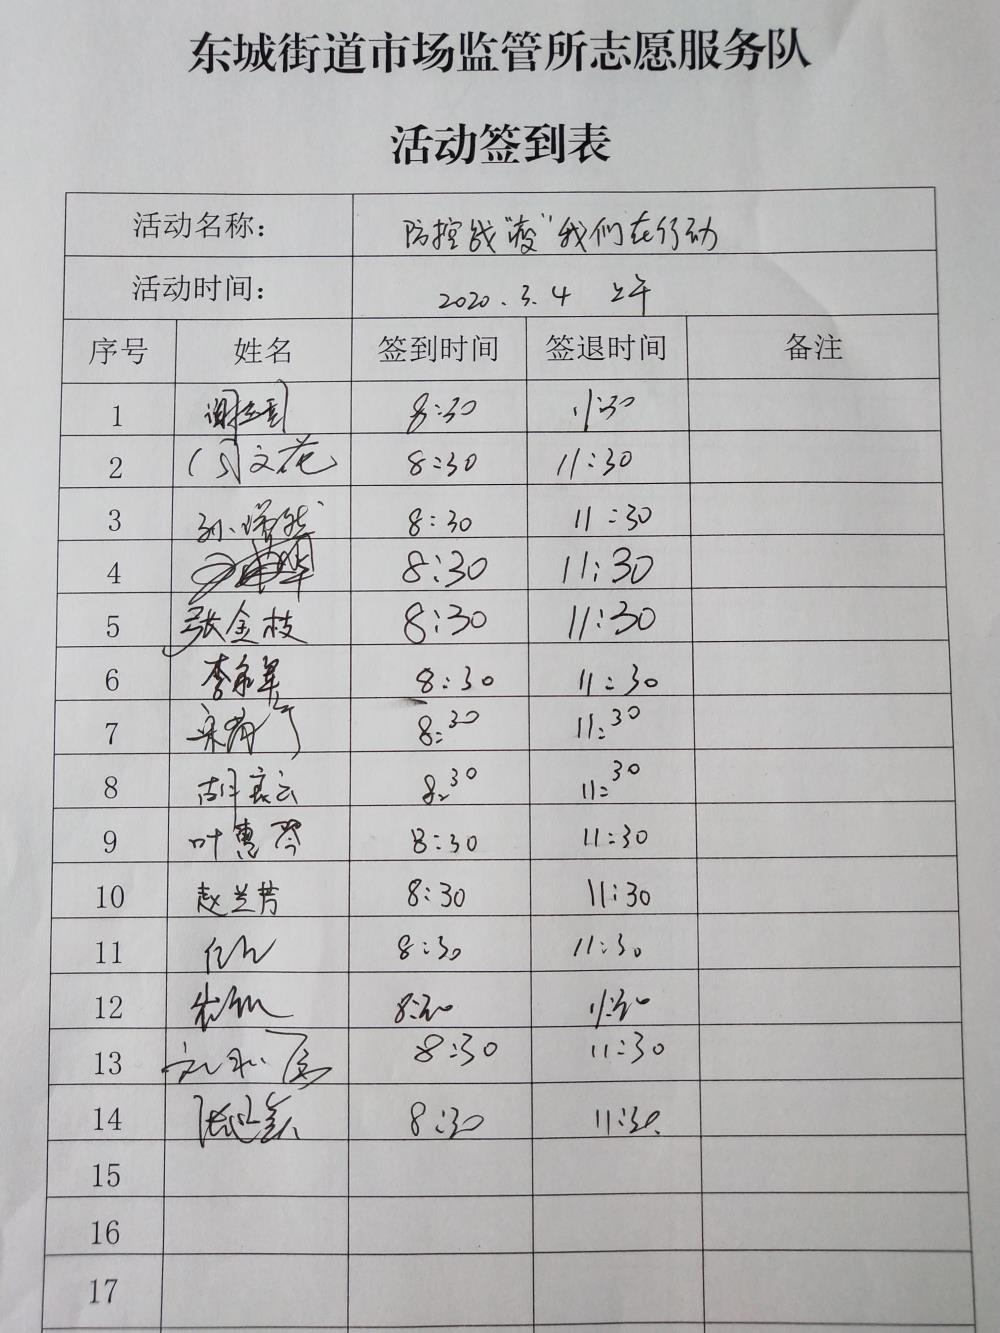 东城街道市场监管所志愿服务队
活动签到表
活动名称： 防控战“疫”我们在行动
活动时间： 2020.3.4 上午
序号 姓名 签到时间 签退时间 备注
1 8:30 11:30
2 闫文花 8:30 11:30
3 8:30 11:30
4 8:30 11:30
5 张金枝 8:30 11:30
6 李永军 8:30 11:30
7 8:30 11:30
8 8:30 11:30
9 叶惠琴 8:30 11:30
10 赵兰芳 8:30 11:30
11 8:30 11:30
12 8:30 11:30
13 8:30 11:30
14 8:30 11:30
15
16
17